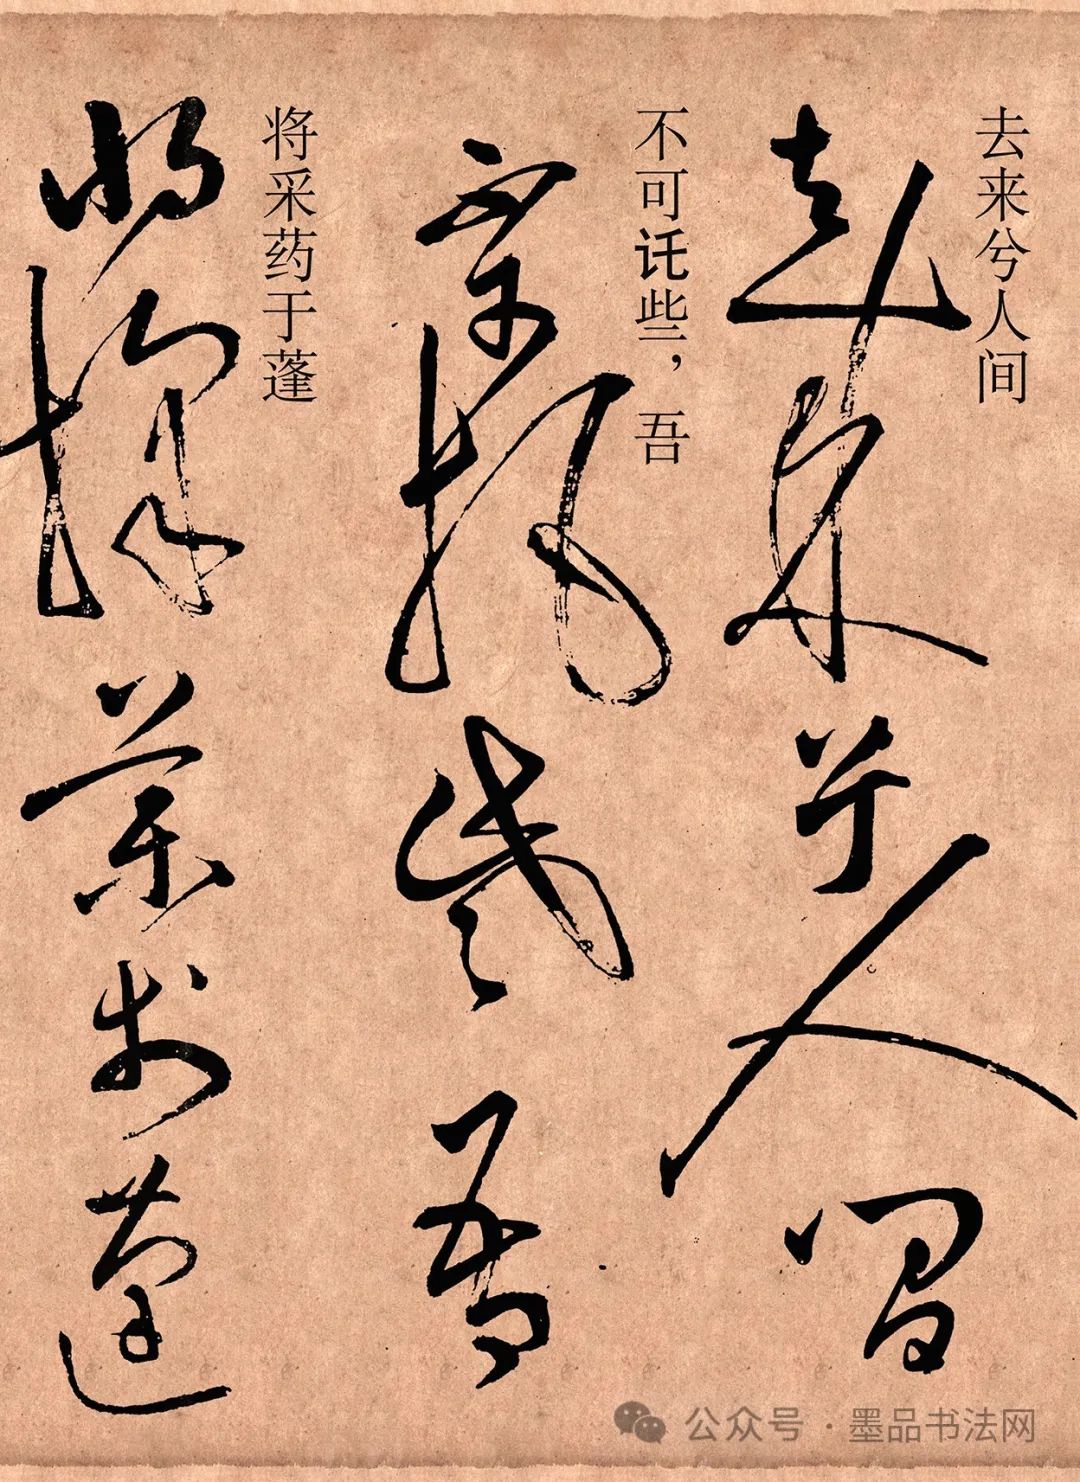 去来兮人间
去来兮人间
不可托些，吾
不可托些吾
将采药于蓬
将採药于蓬
公众号 · 墨品书法网